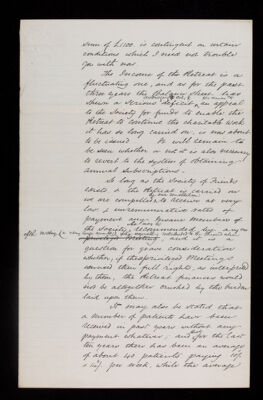 sum of £1100. is contingent on certain
conditions which I need not trouble
you with now
The Income of the Retreat is a
fluctuating one, and as for the past
three years the Balance Sheet has
shewn a serious deficit, an appeal
to the Society for funds to enable the
Retreat to continue the charitable work
it has so long carried on, is now about
to be issued. It will remain to
be seen whether or not it is also necessary
to revert to the system of obtaining
Annual Subscriptions.
So long as the Society of Friends
exists & the Retreat is carried on
we are compelled to receive at very
low & unremunerative rates of
payment any Insane Members of
the Society, recommended by any
Meeting, and it is a
question for grave consideration
whether, if the
Meetings
claimed their full rights, as interpreted
by them, the Retreat finances would
not be altogether crushed by the burden
laid upon them.
It may also be stated that
a number of patients have been
received in past years without any
payment whatever, and for the last
ten years there has been an average
of about 40 patients paying 10/-
per week, while the average